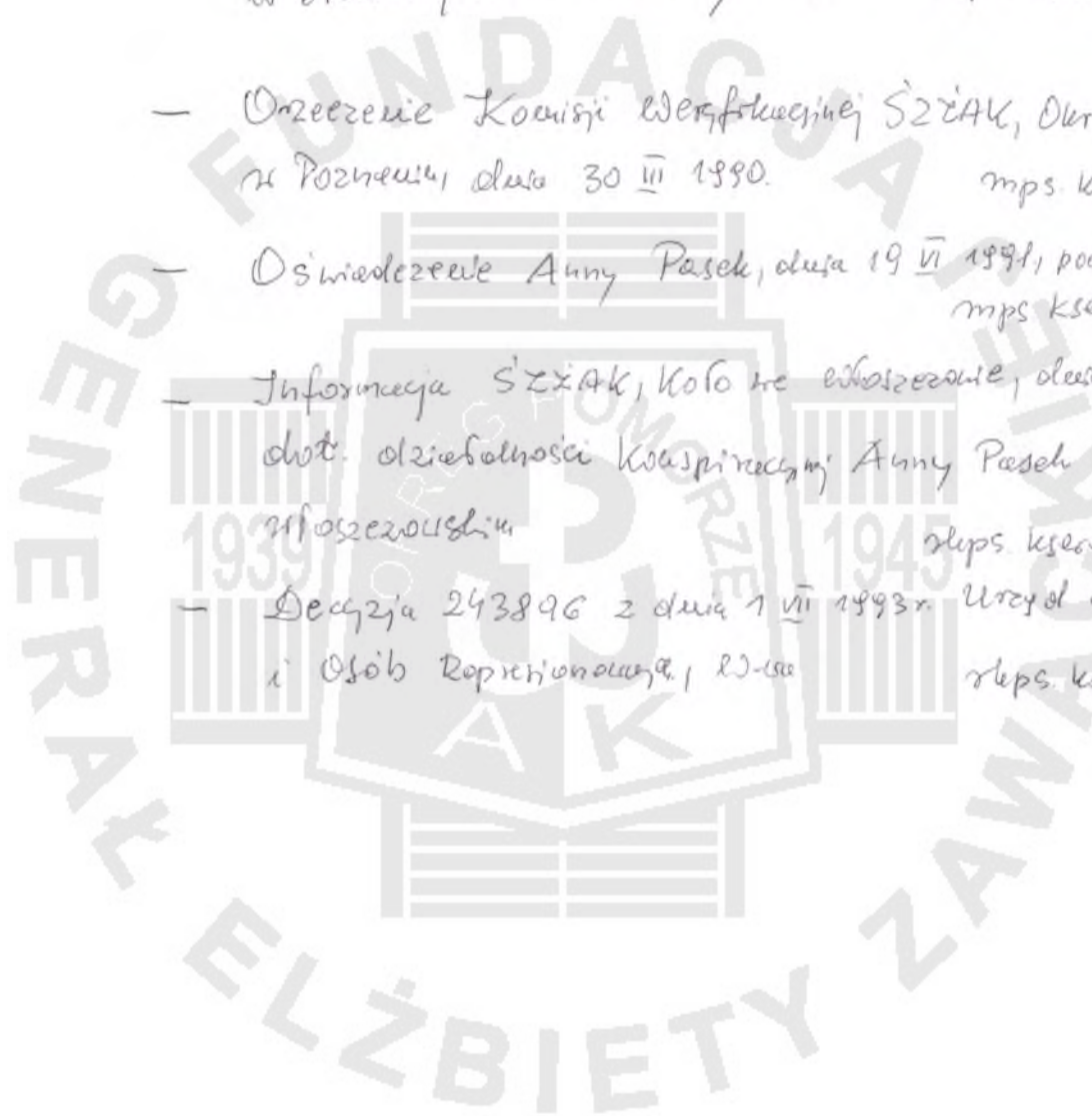 — Orzeczenie Komisji Weryfikacyjnej ŚZŻAK, Okr
w Poznaniu, dnia 30 III 1990. mps. k
— Oświadczenie Anny Pasek, dnia 19 VI 1991, po
mps kse
— Informacja ŚZŻAK, Koło we Włoszczowie, dn
dot. działalności konspiracyjnej Anny Pasek
włoszczowskim rkps. kse
— Decyzja 243896 z dnia 1 VII 1993r. Urząd
i Osób Represjonowanych, W-wa rkps. k
FUNDACJA
GENERAŁ ELŻBIETY ZAWACKIEJ
OKRĘG POMORZE
1939 1945
AK